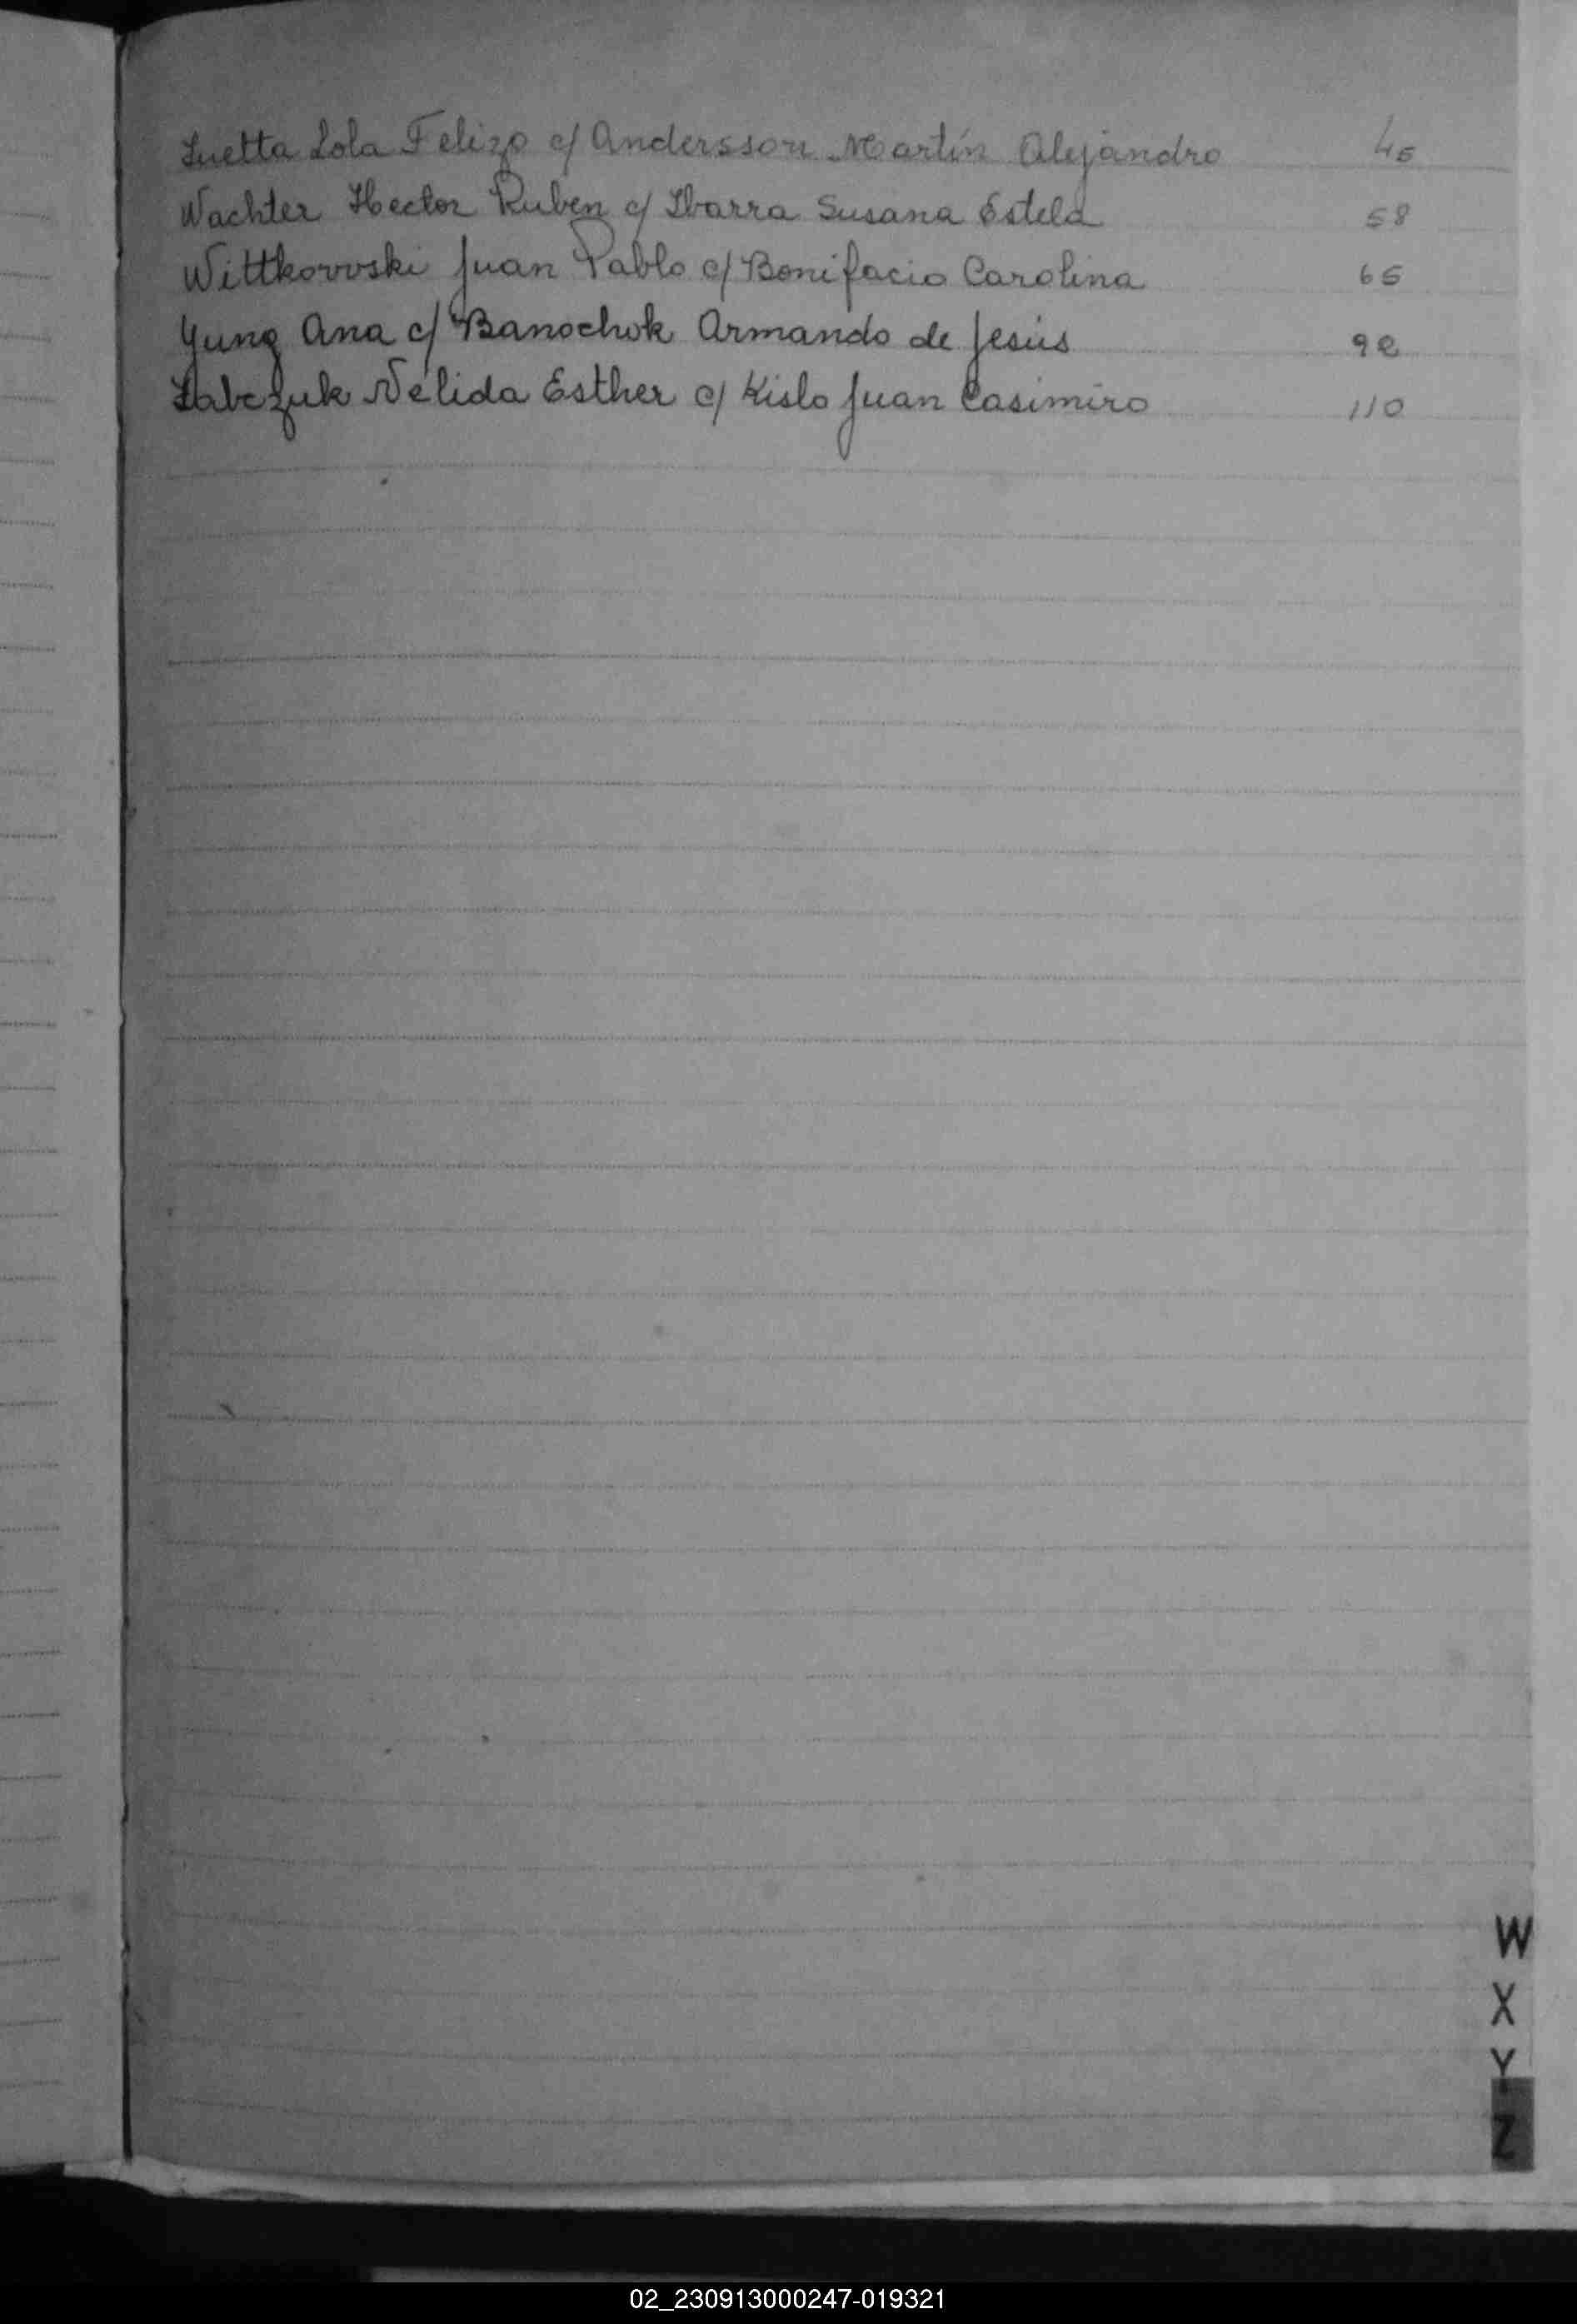 Zuetta Lola Felizo c/ Andersson Martín Alejandro 45
Wachter Hector Ruben c/ Ibarra Susana Estela 58
Wittkowski Juan Pablo c/ Bonifacio Carolina 65
Yung Ana c/ Banochok Armando de Jesús 92
Zabczuk Nélida Esther c/ Kislo Juan Casimiro 110
W
X
Y
Z
02_230913000247-019321